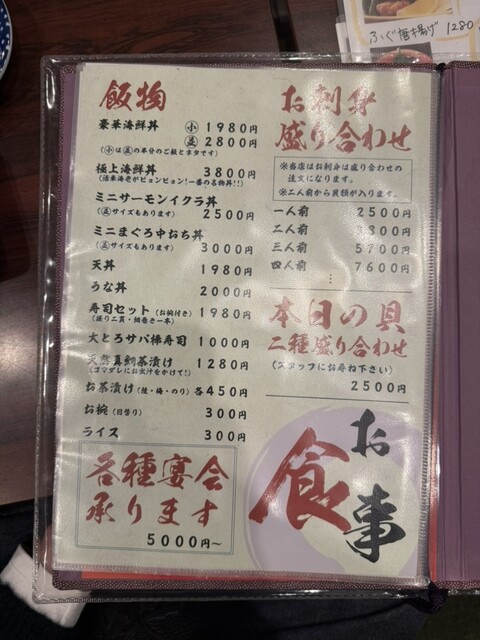 ふぐ唐揚げ 1280
飯物
豪華海鮮丼 小 1980円
並 2800円
(小は並の半分のご飯とネタです)
極上海鮮丼 3800円
(活車海老がピョンピョン!一番の名物丼!!)
ミニサーモンイクラ丼
(並サイズもあります) 2500円
ミニまぐろ中おち丼
(並サイズもあります) 3000円
天丼 1980円
うな丼 2000円
寿司セット(お椀付き) 1980円
(握り二貫・細巻き一本)
大とろサバ棒寿司 1000円
天然真鯛茶漬け 1280円
(ゴマダレにお出汁をかけて!)
お茶漬け(鮭・梅・のり)各450円
お椀(日替り) 300円
ライス 300円
各種宴会
承ります
5000円~
お刺身
盛り合わせ
※当店はお刺身は盛り合わせの
注文になります。
※二人前から貝類が入ります。
一人前 2500円
二人前 3800円
三人前 5700円
四人前 7600円
⋮
本日の貝
二種盛り合わせ
(スタッフにお尋ね下さい)
2500円
お食事